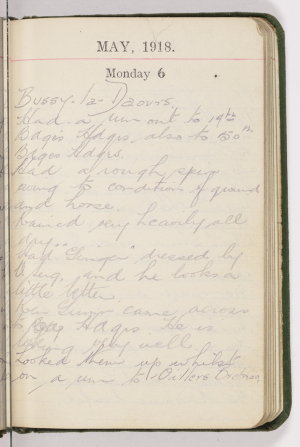 MAY, 1918.
Monday 6
Bussy-la-Daours.
Had a run out to 19th
Bdgis Hdqrs, also to 150th
Bdges Hdqrs.
Had a rough spin
owing to condition of ground
and horse.
Rained very heavily all
day.
Had "Ginger" dressed by
and he looks a
little better.
came across
to Hdqrs. He is
looking very well
Looked them up whilst
on a run to